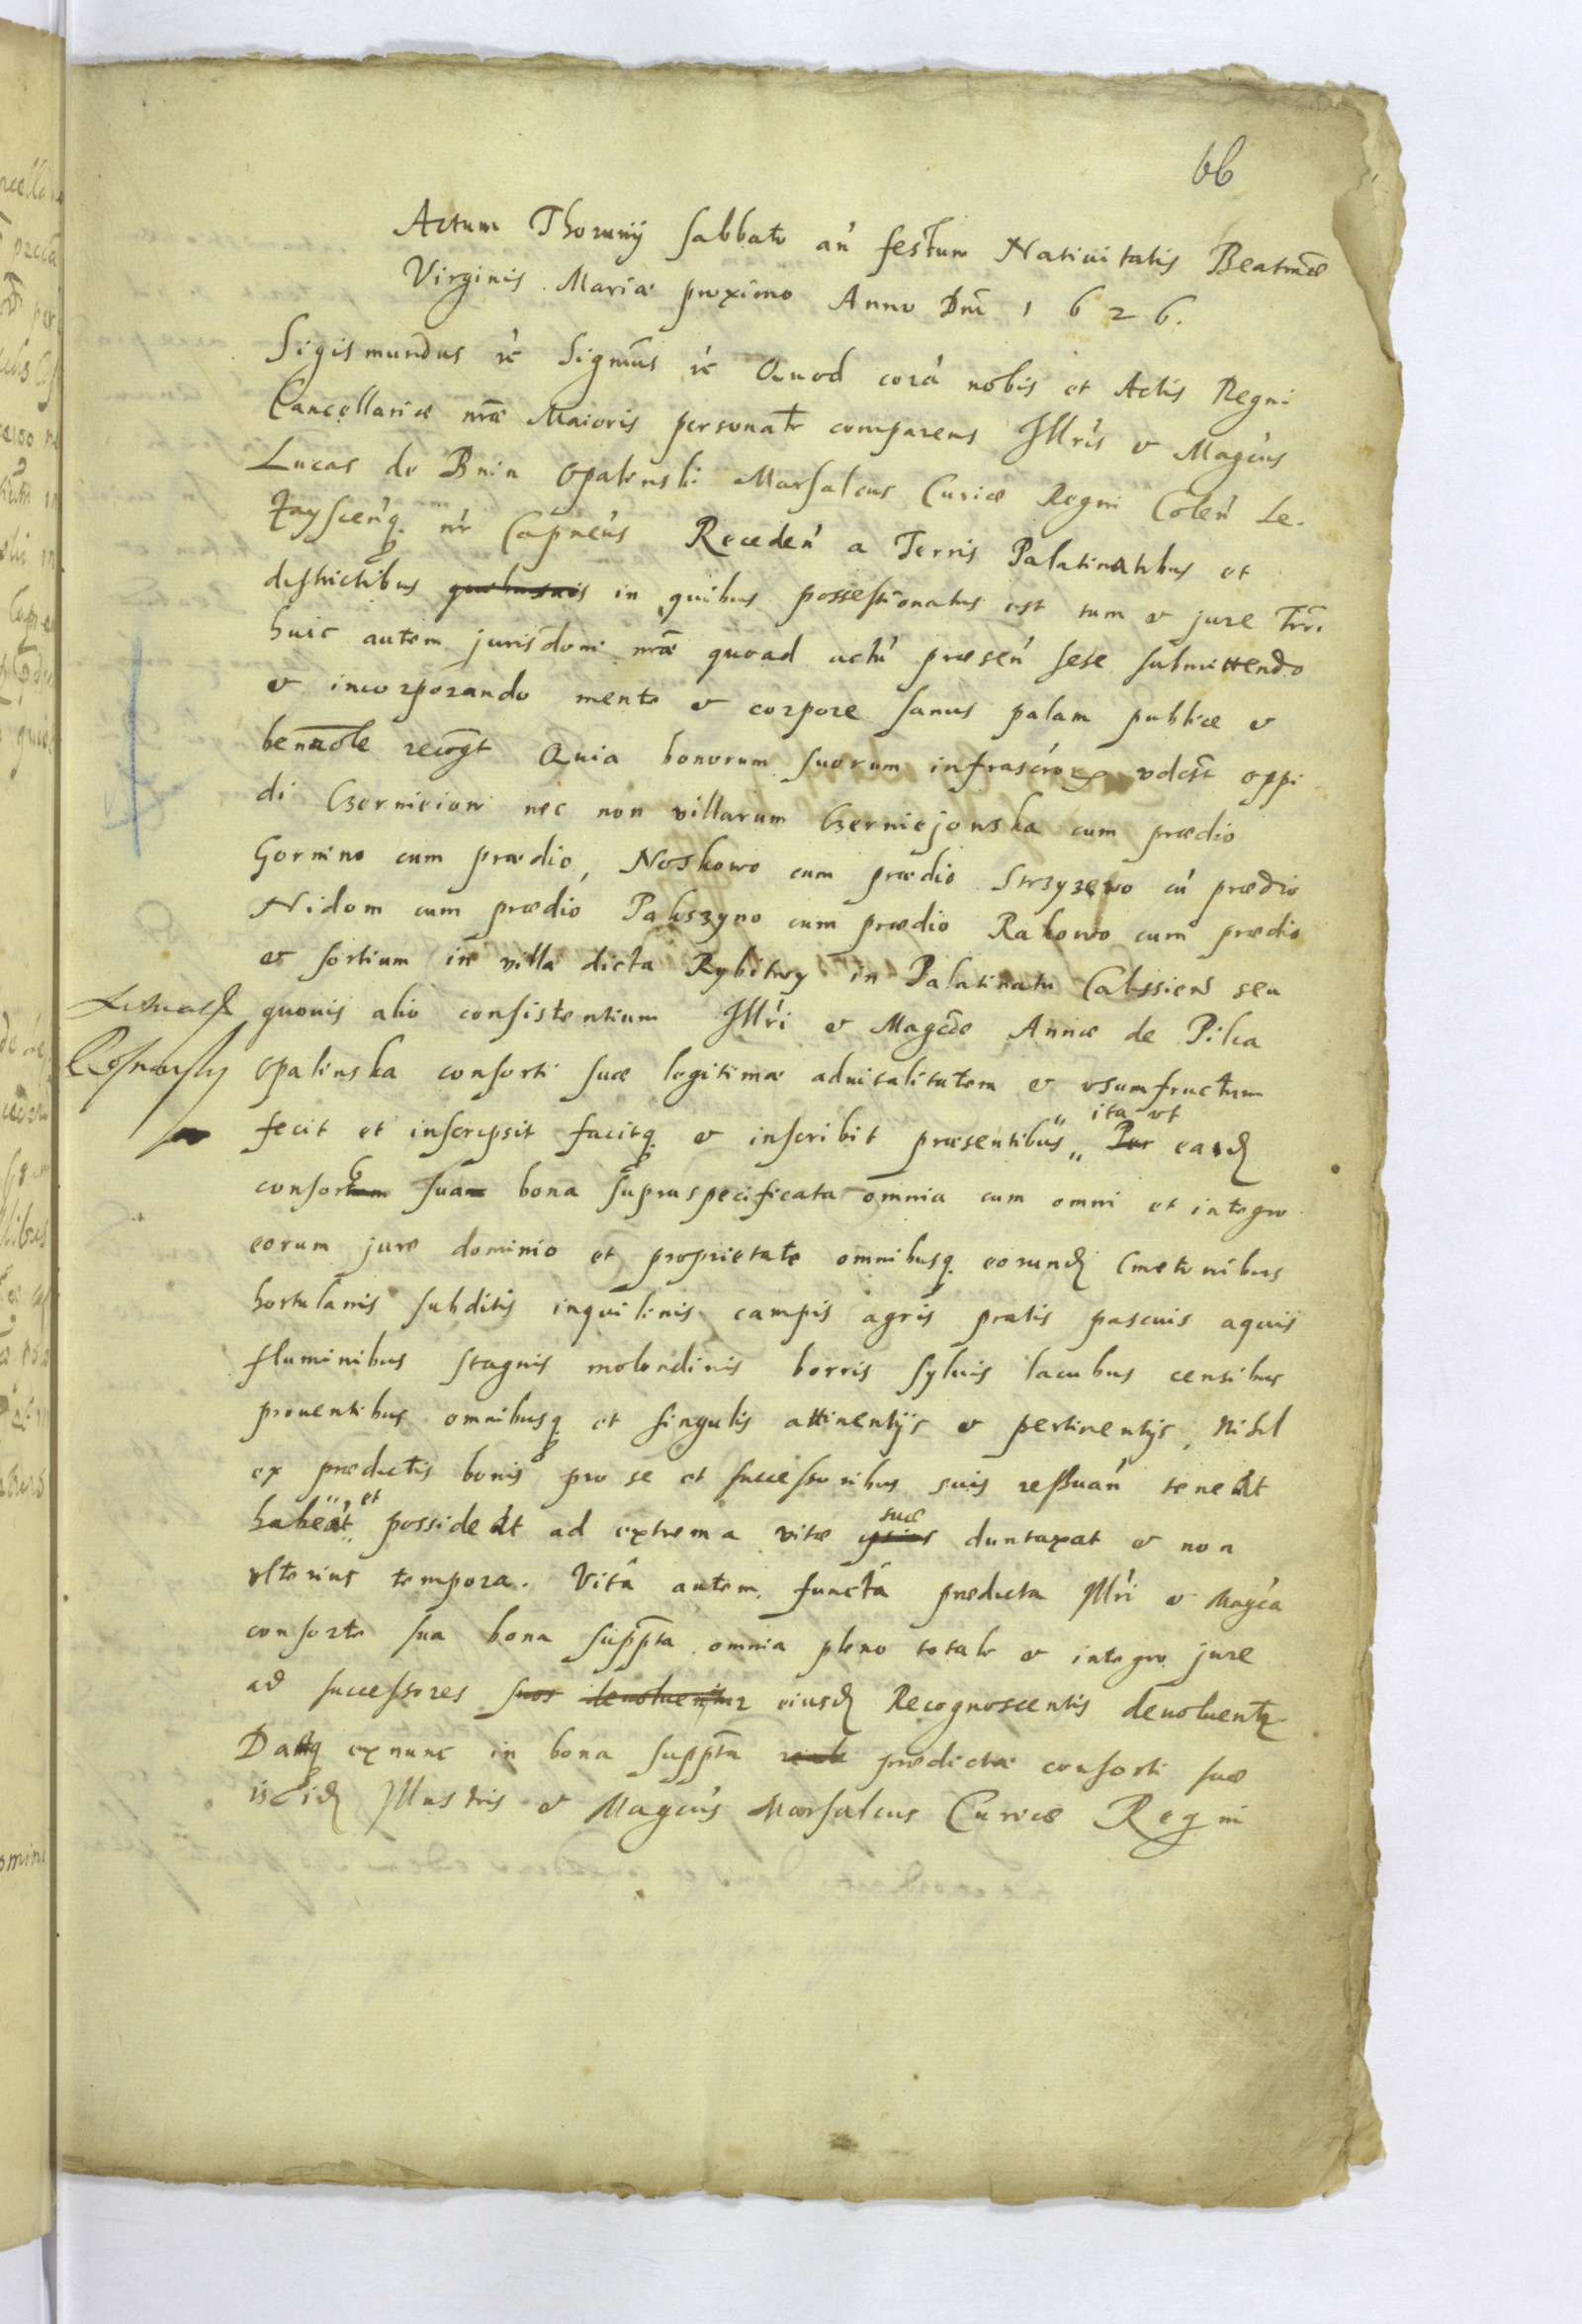 66
Actum Thorunij sabbato an̄ festum Natiuitatis Beatm̄æ
Virginis Mariæ proximo Anno Dn̄i 1626.
Sigismundus rc̄ Signm̄us rc̄ Quod corā nobis et Actis Regni
Cancellariæ nr̄æ Maioris personatr comparens Illr̄is & Magc̄us
Lucas de Bnin Opalenski Marsalcus Curiæ Regni Colen̄ Le-
zayscen̄q. nr̄ Capneūs Receden̄ a Terris Palatinatibus et
districtibus in quibus possessionatus est tum & jure Trr̄i
huic autem jurisdoni nr̄æ quoad actū præsen̄ sese submittendo
& incorporando mente & corpore sanus palam publice &
recogt̄ Quia bonorum suorum infrascr̄or vdest̄ oppi
di Czernieiow nec non villarum Czerniejonska cum prædio
Gornino cum prædio, Noskowo cum prædio Strzyzewo cū prædio
Nidom cum prædio Pakszyno cum prædio Rakowo cum prædio
et sortium in villa dicta Rybitwy in Palatinatu Calissien̄ seu
quouis alio consistentium Illr̄i & Magc̄æ Annæ de Pilca
Opalenska consorti suæ legitimæ aduitalitatem & vsumfructum
fecit et inscripsit facitq. & inscribit præsentibus ita vt Per eadē
consors sua bona supraspecificata omnia cum omni et integro
eorum jure dominio et proprietate omnibusq. eorundē Cmetonibus
hortulanis subditis inquilinis campis agris pratis pascuis aquis
fluminibus stagnis molendinis borris syluis lacubus censibus
prouentibus omnibusq. et singulis attinentijs & pertinentijs, Nihil
ex prædictis bonis pro se et successoribus suis resuan̄ teneat
habeat et possideat ad extrema vitæ ipsius suæ duntaxat & non
vlterius tempora. Vitâ autem functâ prædicta Illr̄i & Magc̄a
consorte sua bona supp̄ta omnia pleno totale & integro jure
ad successores suos deuoluentur eiusdē Recognoscentis deuoluentr
Datq exnunc in bona supp̄ta prædictæ consorti suæ
is idē Illustris & Magcūs Marsalcus Curiæ Regni